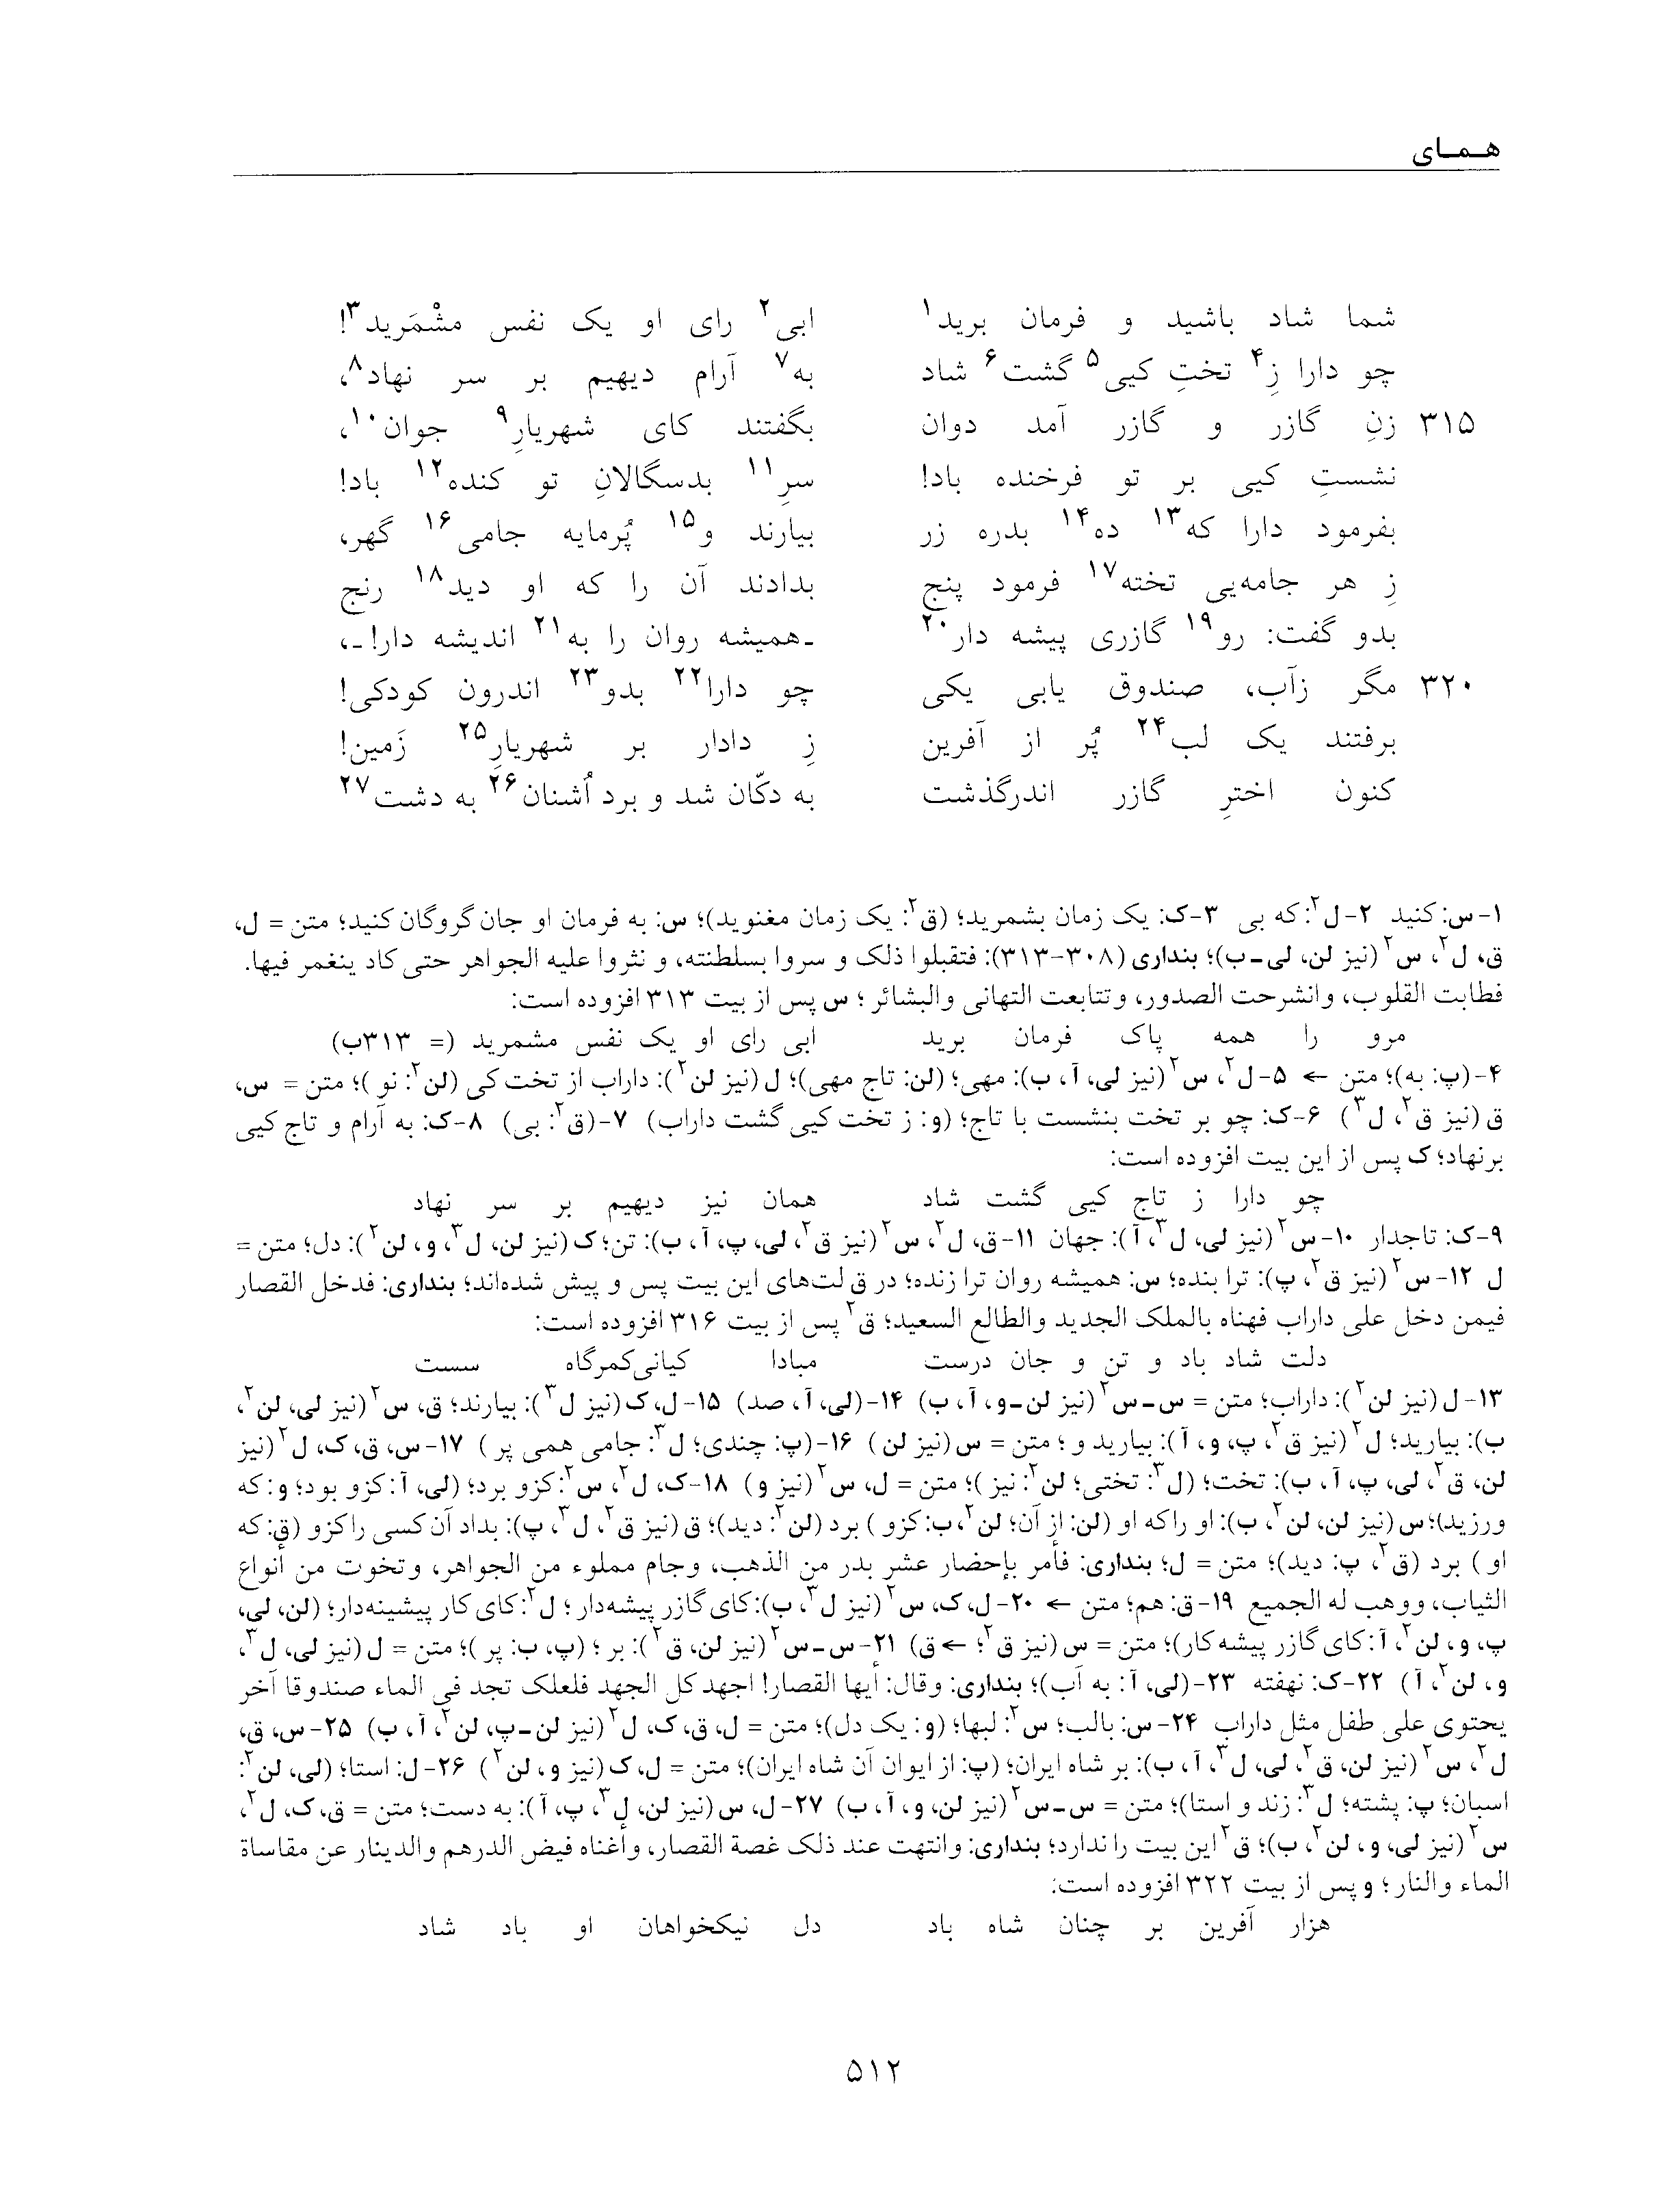 همای
شما شاد باشید و فرمان برید۱ ابی۲ رای او یک نفس مشْمَرید۳!
چو دارا زِ۴ تختِ کیی۵ گشت۶ شاد به۷ آرام دیهیم بر سر نهاد۸،
۳۱۵ زنِ گازر و گازر آمد دوان بگفتند کای شهریارِ۹ جوان۱۰،
نشستِ کیی بر تو فرخنده باد! سرِ۱۱ بدسگالانِ تو کنده۱۲ باد!
بفرمود دارا که۱۳ ده۱۴ بدره زر بیارند و۱۵ پُرمایه جامی۱۶ گهر،
زِ هر جامه‌یی تخته۱۷ فرمود پنج بدادند آن را که او دید۱۸ رنج
بدو گفت: رو۱۹ گازری پیشه دار۲۰ ـ‌همیشه روان را به۲۱ اندیشه دار! ـ،
۳۲۰ مگر زآب، صندوق یابی یکی چو دارا۲۲ بدو۲۳ اندرون کودکی!
برفتند یک لب۲۴ پُر از آفرین زِ دادار بر شهریارِ۲۵ زَمین!
کنون اخترِ گازر اندرگذشت به دکّان شد و برد اُشنان۲۶ به دشت۲۷
۱- س: کنید ۲- ل۲: که بی ۳- ک: یک زمان بشمرید؛ (ق۲: یک زمان مغنوید)؛ س: به فرمان او جان گروگان کنید؛ متن = ل،
ق، ل۲، س۲ (نیز لن، لی ـ ب)؛ بنداری (۳۰۸-۳۱۳): فتقبلوا ذلک و سروا بسلطنته، و نثروا علیه الجواهر حتی کاد ینغمر فیها.
فطابت القلوب، وانشرحت الصدور، وتتابعت التهانی والبشائر؛ س پس از بیت ۳۱۳ افزوده است:
مرو را همه پاک فرمان برید ابی رای او یک نفس مشمرید (= ۳۱۳ب)
۴- (پ: به)؛ متن ← ۵- ل۲، س۲ (نیز لی، آ، ب): مهی؛ (لن: تاج مهی)؛ ل (نیز لن۲): داراب از تخت کی (لن۲: نو)؛ متن = س،
ق (نیز ق۲، ل۳) ۶- ک: چو بر تخت بنشست با تاج؛ (و: ز تخت کیی گشت داراب) ۷- (ق۲: بی) ۸- ک: به آرام و تاج کیی
برنهاد؛ ک پس از این بیت افزوده است:
چو دارا ز تاج کیی گشت شاد همان نیز دیهیم بر سر نهاد
۹- ک: تاجدار ۱۰- س۲ (نیز لی، ل۳، آ): جهان ۱۱- ق، ل۲، س۲ (نیز ق۲، لی، پ، آ، ب): تن؛ ک (نیز لن، ل۳، و، لن۲): دل؛ متن =
ل ۱۲- س۲ (نیز ق۲، پ): ترا بنده؛ س: همیشه روان ترا زنده؛ در ق لت‌های این بیت پس و پیش شده‌اند؛ بنداری: فدخل القصار
فیمن دخل علی داراب فهناه بالملک الجدید والطالع السعید؛ ق۲ پس از بیت ۳۱۶ افزوده است:
دلت شاد باد و تن و جان درست مبادا کیانی‌کمرگاه سست
۱۳- ل (نیز لن۲): داراب؛ متن = س ـ س۲ (نیز لن ـ و، آ، ب) ۱۴- (لی، آ، صد) ۱۵- ل، ک (نیز ل۳): بیارند؛ ق، س۲ (نیز لی، لن۲،
ب): بیارید؛ ل۲ (نیز ق۲، پ، و، آ): بیارید و؛ متن = س (نیز لن) ۱۶- (پ: چندی؛ ل۳: جامی همی پر) ۱۷- س، ق، ک، ل۲ (نیز
لن، ق۲، لی، پ، آ، ب): تخت؛ (ل۳: تختی؛ لن۲: نیز)؛ متن = ل، س۲ (نیز و) ۱۸- ک، ل۲، س۲: کزو برد؛ (لی، آ: کزو بود؛ و: که
ورزید)؛ س (نیز لن، لن۲، ب): او را که او (لن: از آن؛ لن۲، ب: کزو) برد (لن۲: دید)؛ ق (نیز ق۲، ل۳، پ): بداد آن کسی را کزو (ق: که
او) برد (ق۲، پ: دید)؛ متن = ل؛ بنداری: فأمر بإحضار عشر بدر من الذهب، وجام مملوء من الجواهر، وتخوت من أنواع
الثیاب، ووهب له الجمیع ۱۹- ق: هم؛ متن ← ۲۰- ل، ک، س۲ (نیز ل۳، ب): کای گازر پیشه‌دار؛ ل۲: کای کار پیشینه‌دار؛ (لن، لی،
پ، و، لن۲، آ: کای گازر پیشه کار)؛ متن = س (نیز ق۲؛ ← ق) ۲۱- س ـ س۲ (نیز لن، ق۲): بر؛ (پ، ب: پر)؛ متن = ل (نیز لی، ل۳،
و، لن۲، آ) ۲۲- ک: نهفته ۲۳- (لی، آ: به آب)؛ بنداری: وقال: أیها القصار! اجهد کل الجهد فلعلک تجد فی الماء صندوقا آخر
یحتوی علی طفل مثل داراب ۲۴- س: بالب؛ س۲: لبها؛ (و: یک دل)؛ متن = ل، ق، ک، ل۲ (نیز لن ـ پ، لن۲، آ، ب) ۲۵- س، ق،
ل۲، س۲ (نیز لن، ق۲، لی، ل۳، آ، ب): بر شاه ایران؛ (پ: از ایوان آن شاه ایران)؛ متن = ل، ک (نیز و، لن۲) ۲۶- ل: استا؛ (لی، لن۲:
اسبان؛ پ: پشته؛ ل۳: زند و استا)؛ متن = س ـ س۲ (نیز لن، و، آ، ب) ۲۷- ل، س (نیز لن، ل۳، پ، آ): به دست؛ متن = ق، ک، ل۲،
س۲ (نیز لی، و، لن۲، ب)؛ ق۲ این بیت را ندارد؛ بنداری: وانتهت عند ذلک غصة القصار، وأغناه فیض الدرهم والدینار عن مقاساة
الماء والنار؛ و پس از بیت ۳۲۲ افزوده است:
هزار آفرین بر چنان شاه باد دل نیکخواهان او باد شاد
۵۱۲